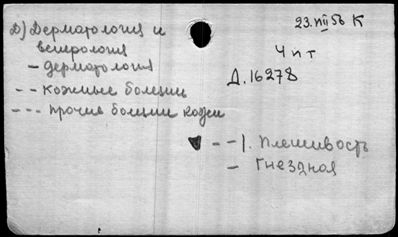 Д) Дерматология и
венерология
- дерматология
-- кожные болезни
--- прочие болезни кожи
23.VIII 56 К
Ч п т
Д.16278
-- 1. Плешивость
- Гнездная